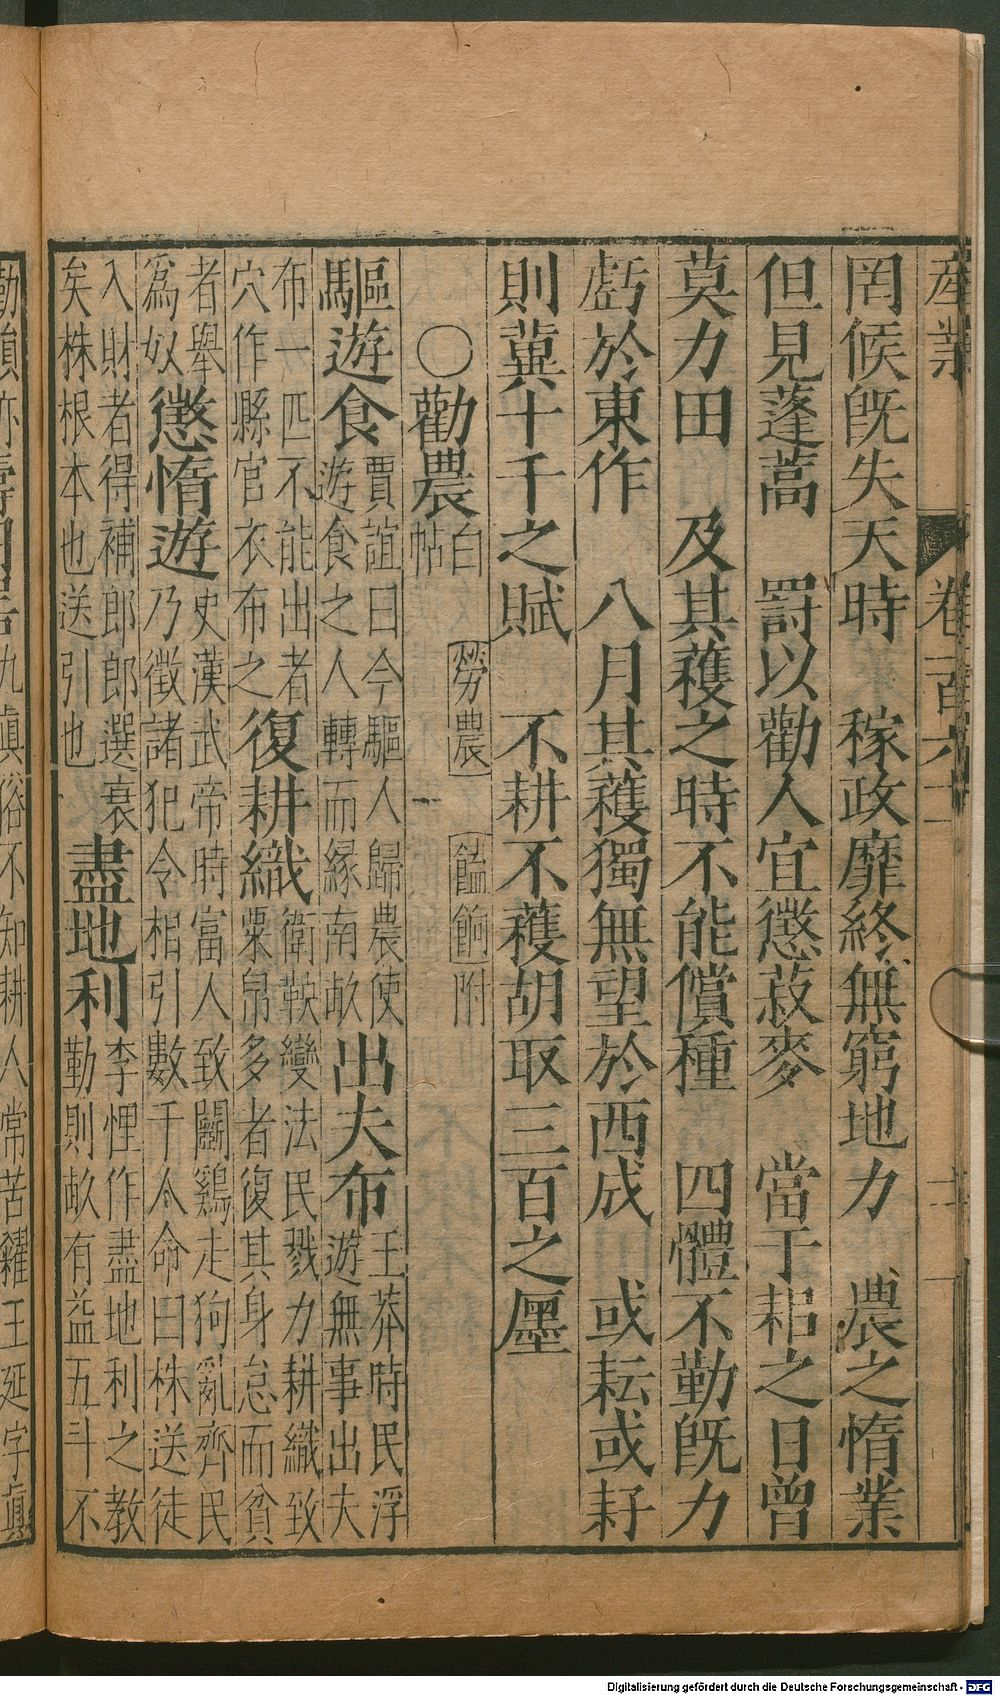 產業
卷一百六十一
罔候既失天時　稼政靡終無窮地力　農之惰業
但見蓬蒿　罸以勸人宜懲菽麥　當于耜之日曾
莫力田　及其穫之時不能償種　四體不勤既力
虧於東作　八月其穫獨無望於西成　或耘或耔
則冀十千之賦　不耕不穫胡取三百之廛
〇勸農白帖　勞農　饁餉附
驅遊食賈誼曰今驅人歸農使
遊食之人轉而緣南畝出夫布王莽時民浮
遊無事出夫
布一匹不能出者
穴作縣官衣布之復耕織衛鞅變法民戮力耕織致
粟帛多者復其身怠而貧
者舉
為奴懲惰遊史漢武帝時富人致鬭鷄走狗亂齊民
乃徵諸犯令相引數千人命曰株送徒
入財者得補郎郎選衰
矣株根本也送引也盡地利李悝作盡地利之教
勤則畝有益五斗不
勤損亦
九真俗不知耕人常苦糴王延字真
Digitalisierung gefördert durch die Deutsche Forschungsgemeinschaft - DFG